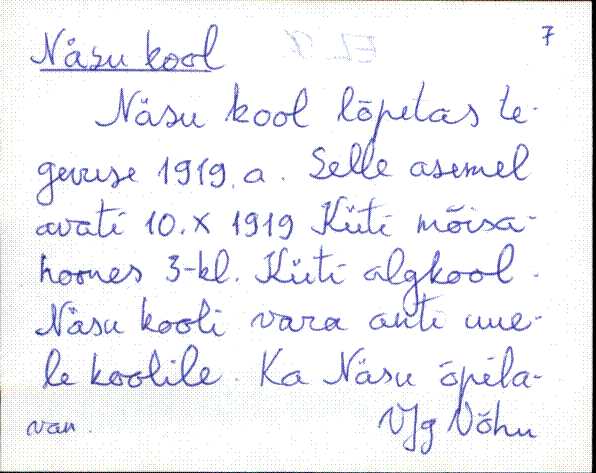 7
Näsu kool
Näsu kool lõpetas te-
gevuse 1919.a. Selle asemel
avati 10.X 1919 Küti mõisa-
hoones 3-kl. Küti algkool.
Näsu kooli vara anti uue-
le koolile. Ka Näsu õpila-
van.
Võhu